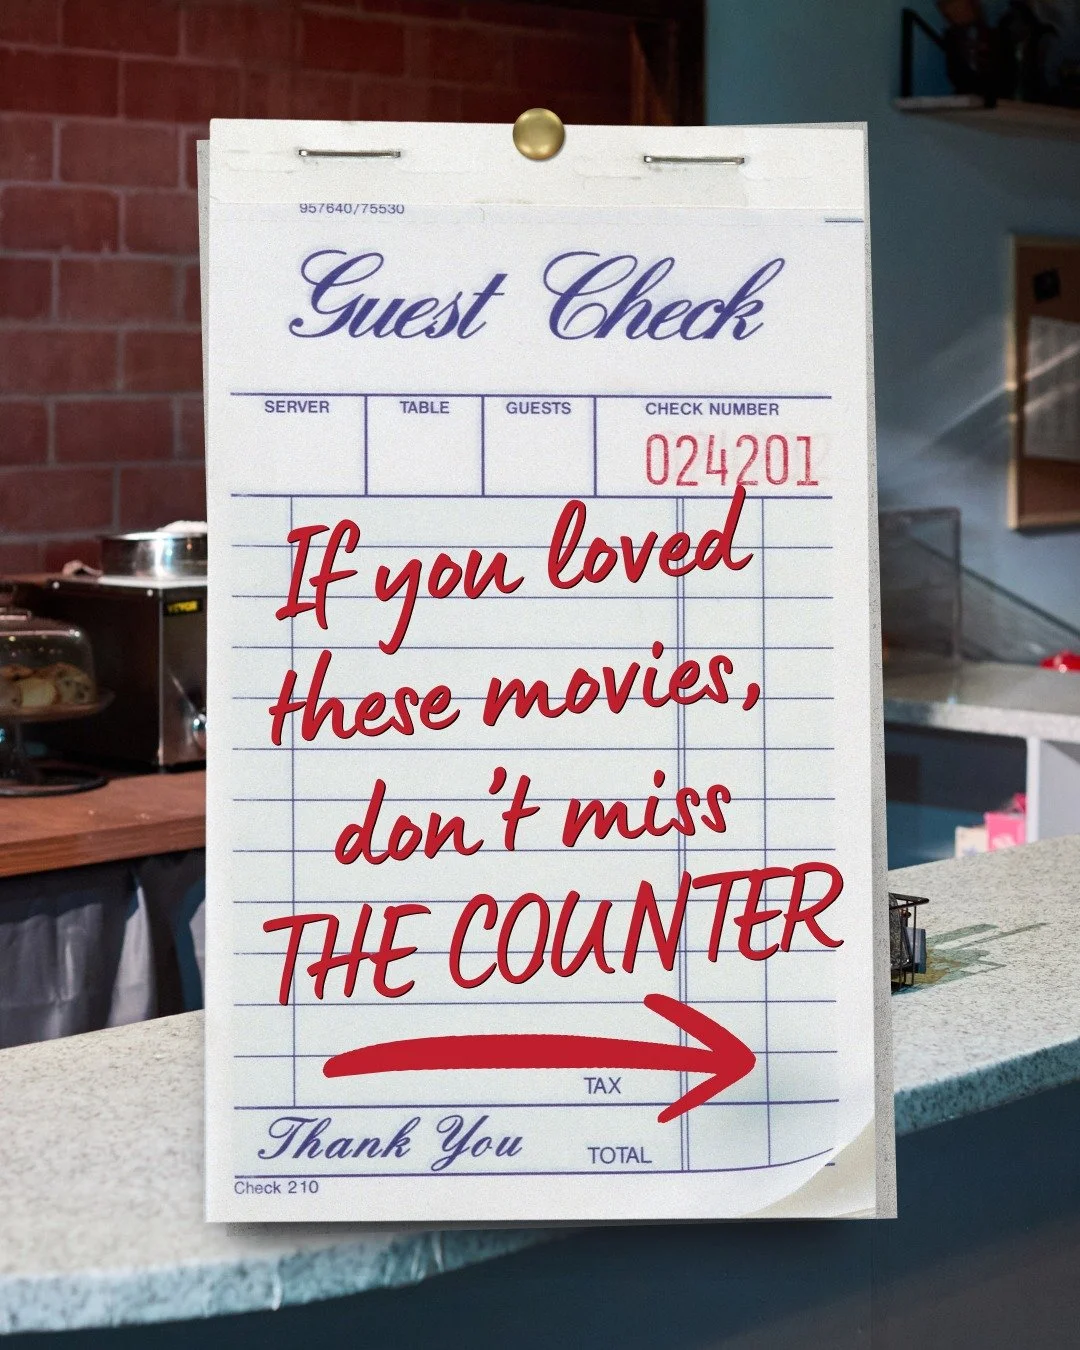 957640/75530
Guest Check
SERVER TABLE GUESTS CHECK NUMBER
024201
If you loved
these movies,
don't miss
THE COUNTER
TAX
Thank You TOTAL
Check 210